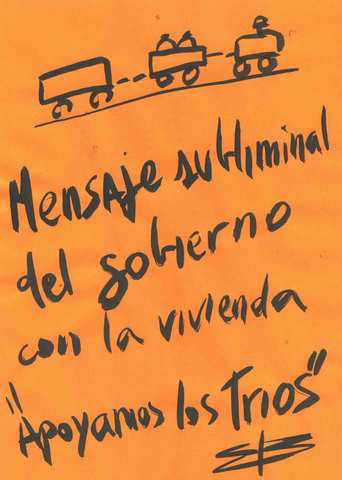 Mensaje subliminal
del gobierno
con la vivienda
"Apoyamos los Trios"